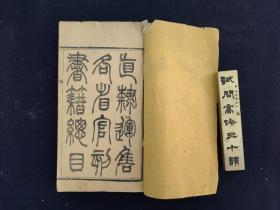 直隸運售
各省官刻
書籍總目
試問高吟三十韻